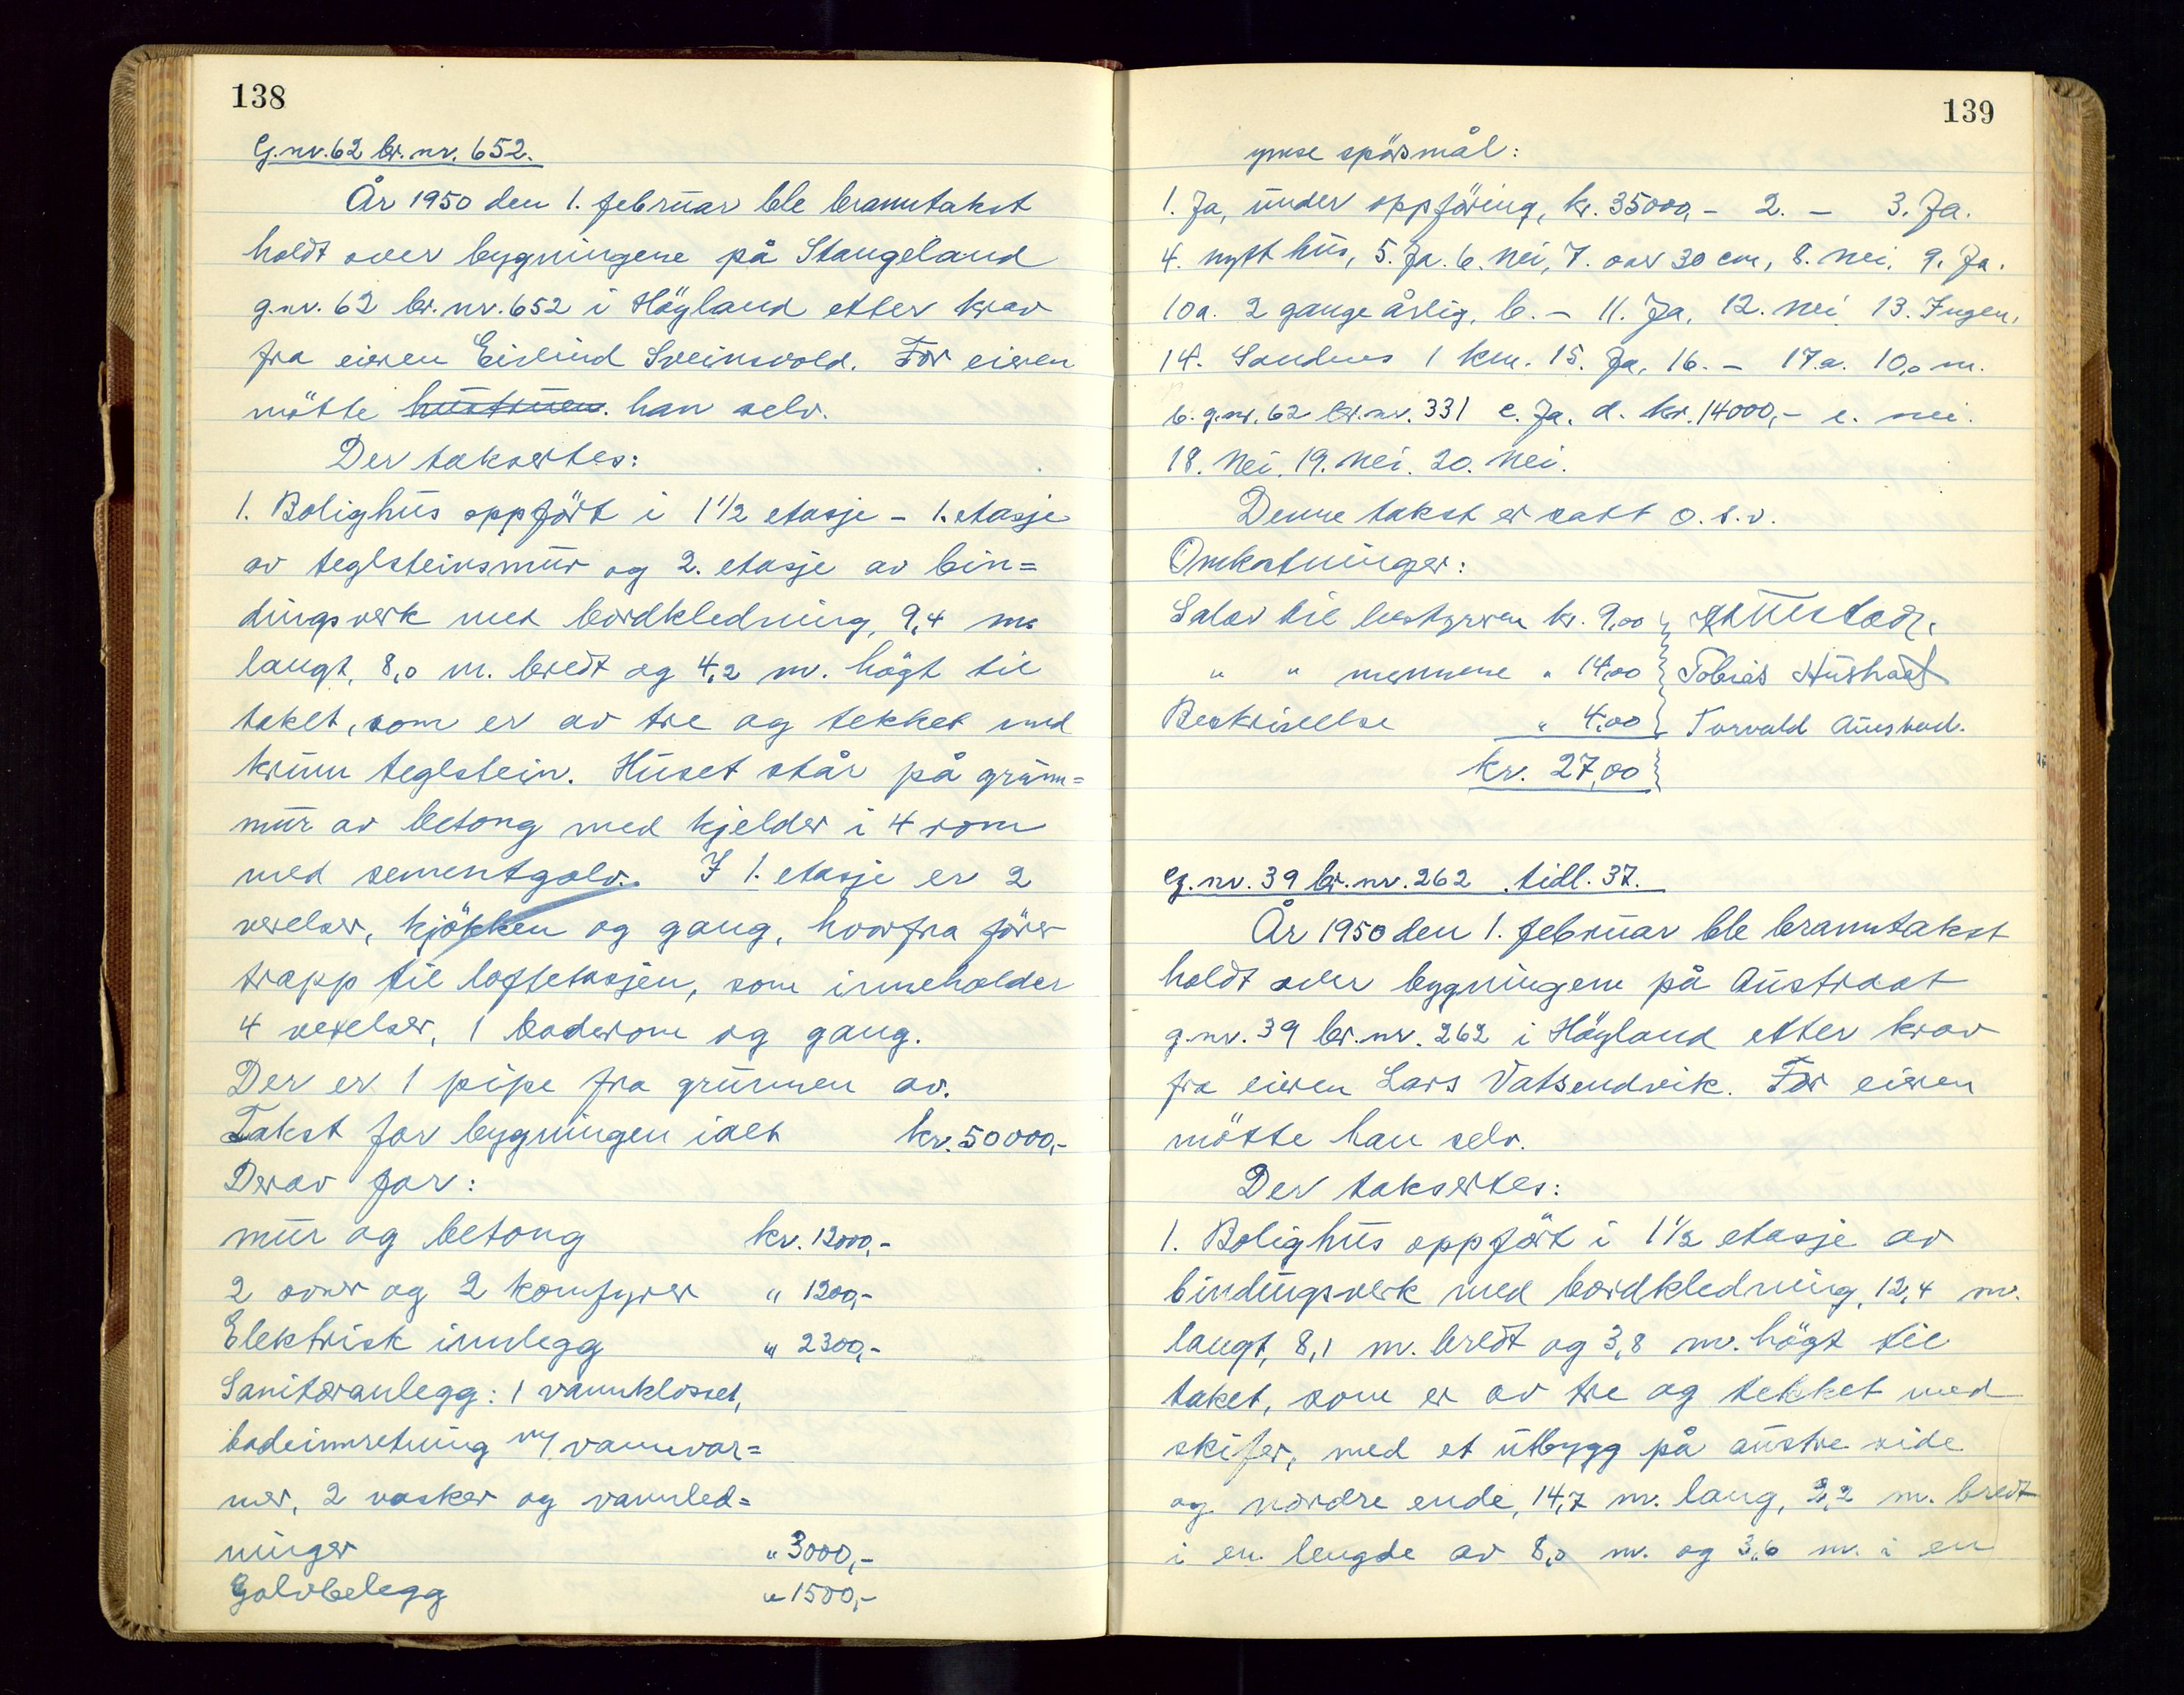 138
G.nr. 62 br. nr. 652.
År 1950 den 1. februar ble branntakst
holdt over bygningene på Stangeland
g.nr. 62 br.nr. 652 i Höyland etter krav
fra eieren Eivind Sveinsvold. For eieren
mötte hustruen. han selv.
Der taksertes:
1. Bolighus oppfört i 1 1/2 etasje - 1. etasje
av teglsteinsmur og 2. etasje av bin=
dingsverk med bordkledning, 9,4 m.
langt, 8,0 m. bredt og 4,2 m. högt til
taket, som er av tre og tekket med
krum teglstein. Huset står på grunn=
mur av betong med kjelder i 4 rom
med sementgolv. I 1. etasje er 2
verelser, kjökken og gang, hvorfra förer
trapp til loftetasjen, som inneholder
4 verelser, 1 baderom og gang.
Der er 1 pipe fra grunnen av.
Takst for bygningen ialt kr. 50000,-
Derav for:
mur og betong kr. 12000,-
2 ovner og 2 komfyrer " 1200,-
Elektrisk innlegg " 2300,-
Sanitæranlegg: 1 vannklosset,
badeinnretning m/ vannvar=
mer, 2 vasker og vannled=
ninger " 3000,-
Golvbelegg " 1500,-
139
ymse spörsmål:
1. Ja, under oppföring, kr. 35000,- 2. - 3. Ja.
4. nytt hus, 5. Ja. 6. Nei, 7. over 30 cm, 8. nei. 9. Ja.
10a. 2 gange årlig, b. - 11. Ja, 12. nei 13. Ingen.
14. Sandnes 1 km. 15. Ja, 16. - 17.a. 10,0 m.
b. g.nr. 62 br.nr. 331 c. Ja. d. kr. 14000,- e. nei.
18. Nei. 19. Nei. 20. Nei.
Denne takst er satt o.s.v.
Omkostninger:
Salær til bestyreren kr. 9,00
" " mennene " 14,00 Tobias Husbø
Beskrivelse " 4,00 Torvald Austrad.
kr. 27,00
G. nr. 39 br. nr. 262 tidl. 37.
År 1950 den 1. februar ble branntakst
holdt over bygningene på Austraat
g.nr. 39 br.nr. 262 i Höyland etter krav
fra eieren Lars Vatsendvik. For eieren
mötte han selv.
Der taksertes:
1. Bolighus oppfört i 1 1/2 etasje av
bindingsverk med bordkledning, 12,4 m.
langt, 8,1 m. bredt og 3,8 m. högt til
taket, som er av tre og tekket med
skifer, med et utbygg på austre side
og nordre ende, 14,7 m. lang, 2,2 m. bredt
i en lengde av 8,0 m. og 3,6 m. i en